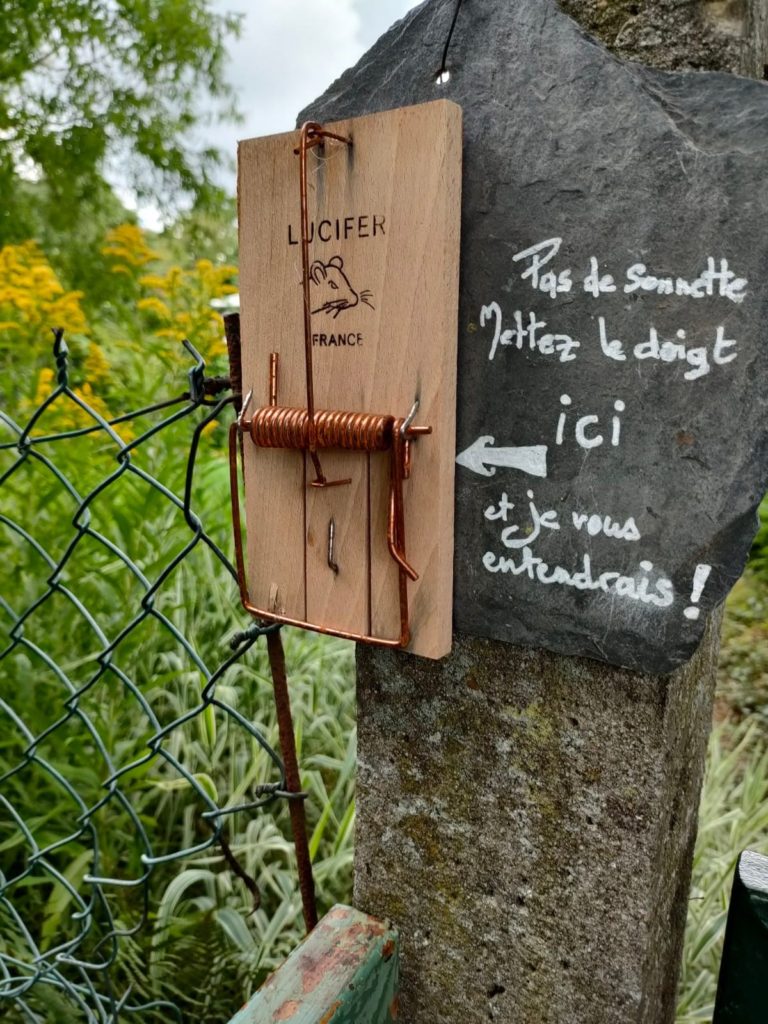 LUCIFER
FRANCE
Pas de sonnette
Mettez le doigt
ici
et je vous
entendrais !